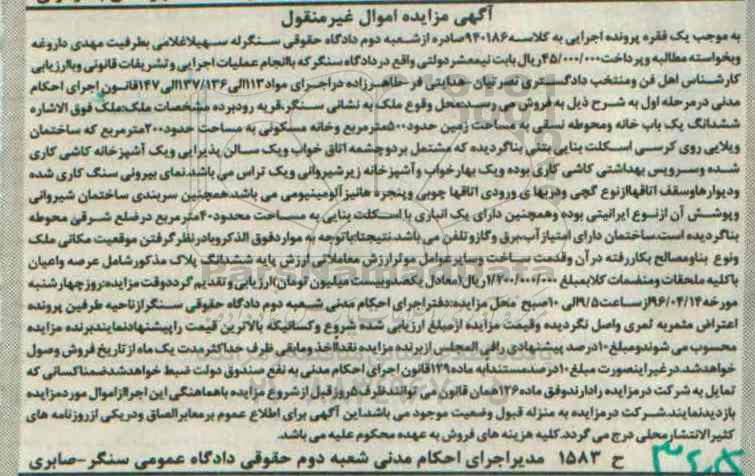 آگهی مزایده اموال غیرمنقول
به موجب یک فقره پرونده اجرایی به کلاسه ۹۴۰۱۸۶ صادره از شعبه دوم دادگاه حقوقی سنگر له سهیلا غلامی بطرفیت مهدی داروغه
وبخواسته مطالبه وپرداخت ۴۵/۰۰۰/۰۰۰ ریال بابت نیم عشر دولتی واقع در دادگاه سنگر که باانجام عملیات اجرایی و تشریفات قانونی وباارزیابی
کارشناس اهل فن ومنتخب دادگستری نصرتیان -هدایتی فر -طاهرزاده دراجرای مواد ۱۱۳الی ۱۳۷/۱۳۶الی ۱۴۷قانون اجرای احکام
مدنی درمرحله اول به شرح ذیل به فروش می رسد:محل وقوع ملک به نشانی سنگر،قریه رودبرده مشخصات ملک:ملک فوق الاشاره
ششدانگ یک باب خانه ومحوطه نسقی به مساحت زمین حدود ۵۰۰مترمربع وخانه مسکونی به مساحت حدود ۲۰۰مترمربع که ساختمان
ویلایی روی کرسی اسکلت بنایی بتنی بناگردیده که مشتمل بر دوچشمه اتاق خواب ویک سالن پذیرایی ویک آشپزخانه کاشی کاری
شده وسرویس بهداشتی کاشی کاری بوده ویک بهارخواب وآشپزخانه زیرشیروانی ویک تراس می باشد.نمای بیرونی سنگ کاری شده
ودیوارهاوسقف اتاقهاازنوع گچی ودربها ی ورودی اتاقها چوبی وپنجره هانیز آلومینیومی می باشد.همچنین سربندی ساختمان شیروانی
وپوشش آن ازنوع ایرانیتی بوده وهمچنین دارای یک انباری بااسکلت بنایی به مساحت محدود ۴۰مترمربع درضلع شرقی محوطه
بناگردیده است.ساختمان دارای امتیاز آب،برق وگازوتلفن می باشد.نتیجتا:باتوجه به مواردفوق الذکروبادرنظرگرفتن موقعیت مکانی ملک
ونوع بناومصالح بکاررفته درآن وقدمت ساخت وسایرعوامل موثرارزش معاملاتی ارزش پایه ششدانگ پلاک مذکورشامل عرصه واعیان
باکلیه ملحقات ومنضمات کلابمبلغ ۱/۲۰۰/۰۰۰/۰۰۰ریال(معادل یکصدوبیست میلیون تومان)ارزیابی وتقدیم گرددوقت مزایده:روزچهارشنبه
مورخه ۹۶/۰۴/۱۴ازساعت ۹/۵الی ۱۰صبح محل مزایده:دفتراجرای احکام مدنی شعبه دوم دادگاه حقوقی سنگرازناحیه طرفین پرونده
اعتراض مثمربه ثمری واصل نگردیده وقیمت مزایده ازمبلغ ارزیابی شده شروع وکسانیکه بالاترین قیمت راپیشنهادنمایندبرنده مزایده
محسوب می شوندومبلغ ۱۰درصد پیشنهادی رافی المجلس ازبرنده مزایده نقدااخذومابقی ظرف حداکثرمدت یک ماه ازتاریخ فروش وصول
خواهدشد.درغیراینصورت مبلغ ۱۰درصدمستندابه ماده ۱۲۹قانون اجرای احکام مدنی به نفع صندوق دولت ضبط خواهدشدضمناکسانی که
تمایل به شرکت درمزایده رادارندوفق ماده ۱۲۶همان قانون می توانند ظرف ۵روزقبل ازشروع مزایده باهماهنگی این اجراازاموال موردمزایده
بازدیدنمایند.شرکت درمزایده به منزله قبول وضعیت موجود می باشد.این آگهی برای اطلاع عموم برمعابرالصاق ودریکی ازروزنامه های
کثیرالانتشارمحلی درج می گردد.کلیه هزینه های فروش به عهده محکوم علیه می باشد.
ح ۱۵۸۳ مدیراجرای احکام مدنی شعبه دوم حقوقی دادگاه عمومی سنگر-صابری
ParsNamadData